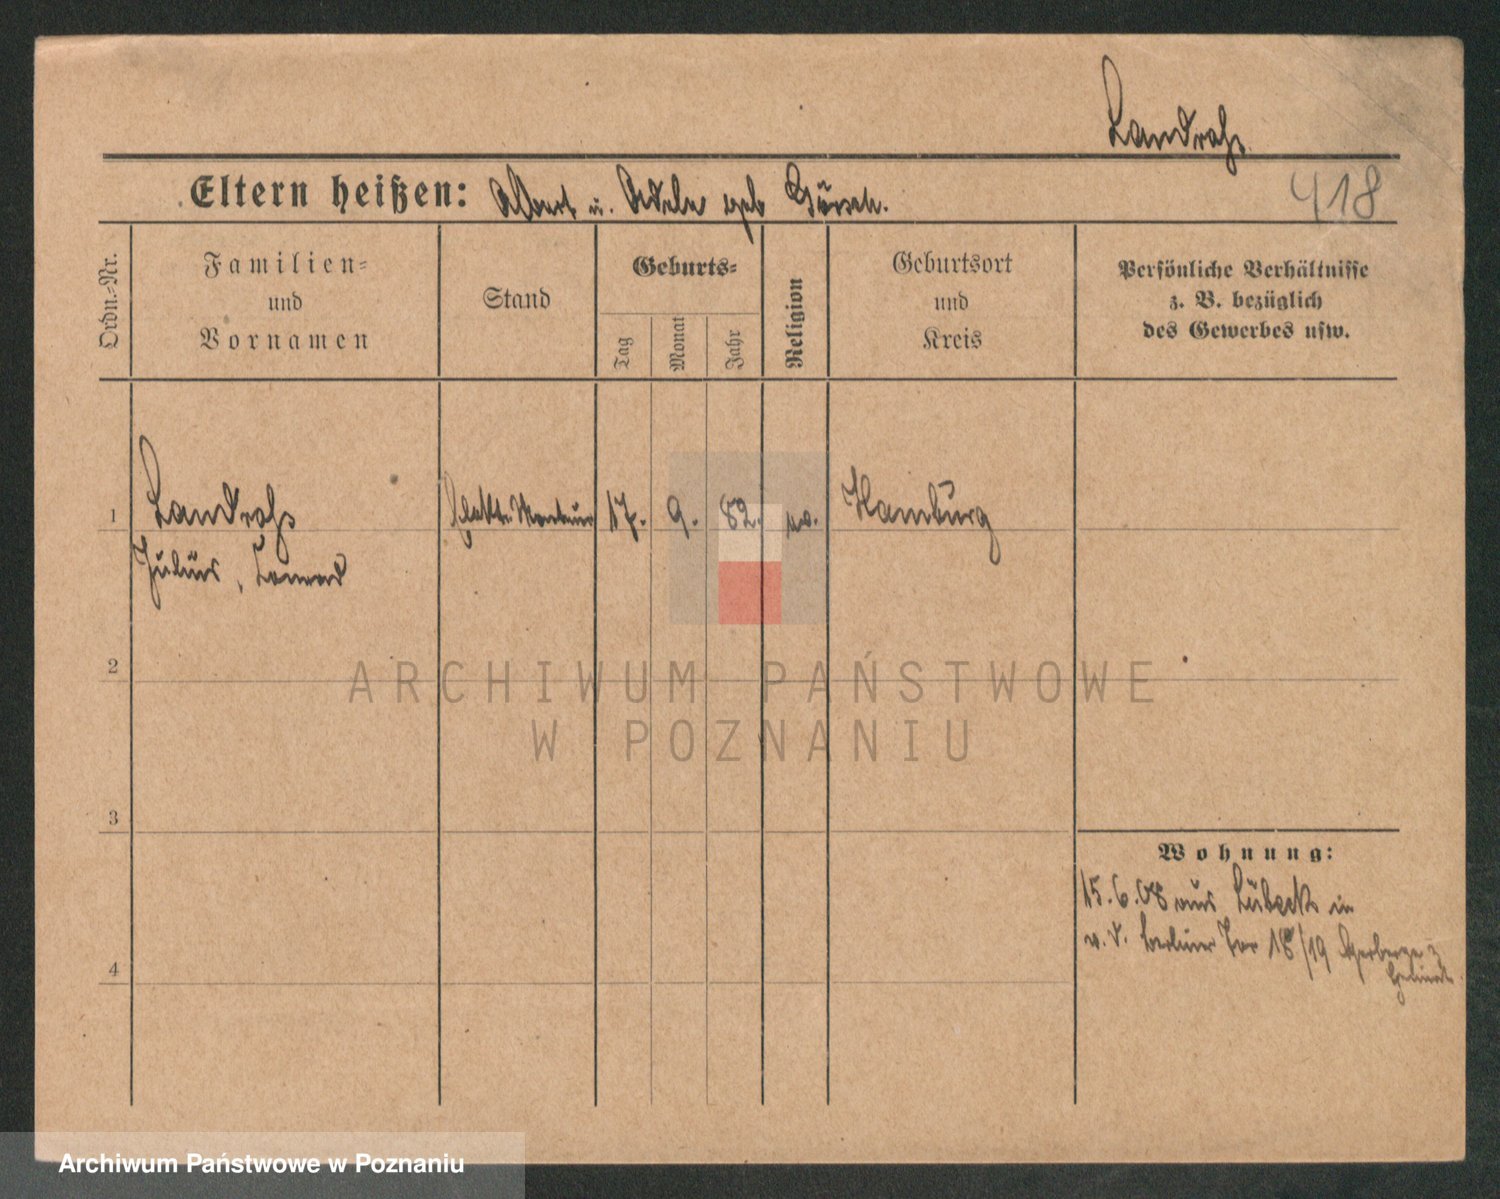 Landrohs
418
Eltern heißen: Albert u. Adele geb
Ordn.-Nr.
Familien-
und
Vornamen
Stand
Geburts-
Tag
Monat
Jahr
Religion
Geburtsort
und
Kreis
Persönliche Verhältnisse
z. B. bezüglich
des Gewerbes usw.
1
Landrohs
17. 9. 82. ev. Hamburg
Julius, Conrad
2
ARCHIWUM PAŃSTWOWE
W POZNANIU
3
Wohnung:
15.6.08 aus Lübeck in
v. d. Berliner Tor 18/19
4
Archiwum Państwowe w Poznaniu